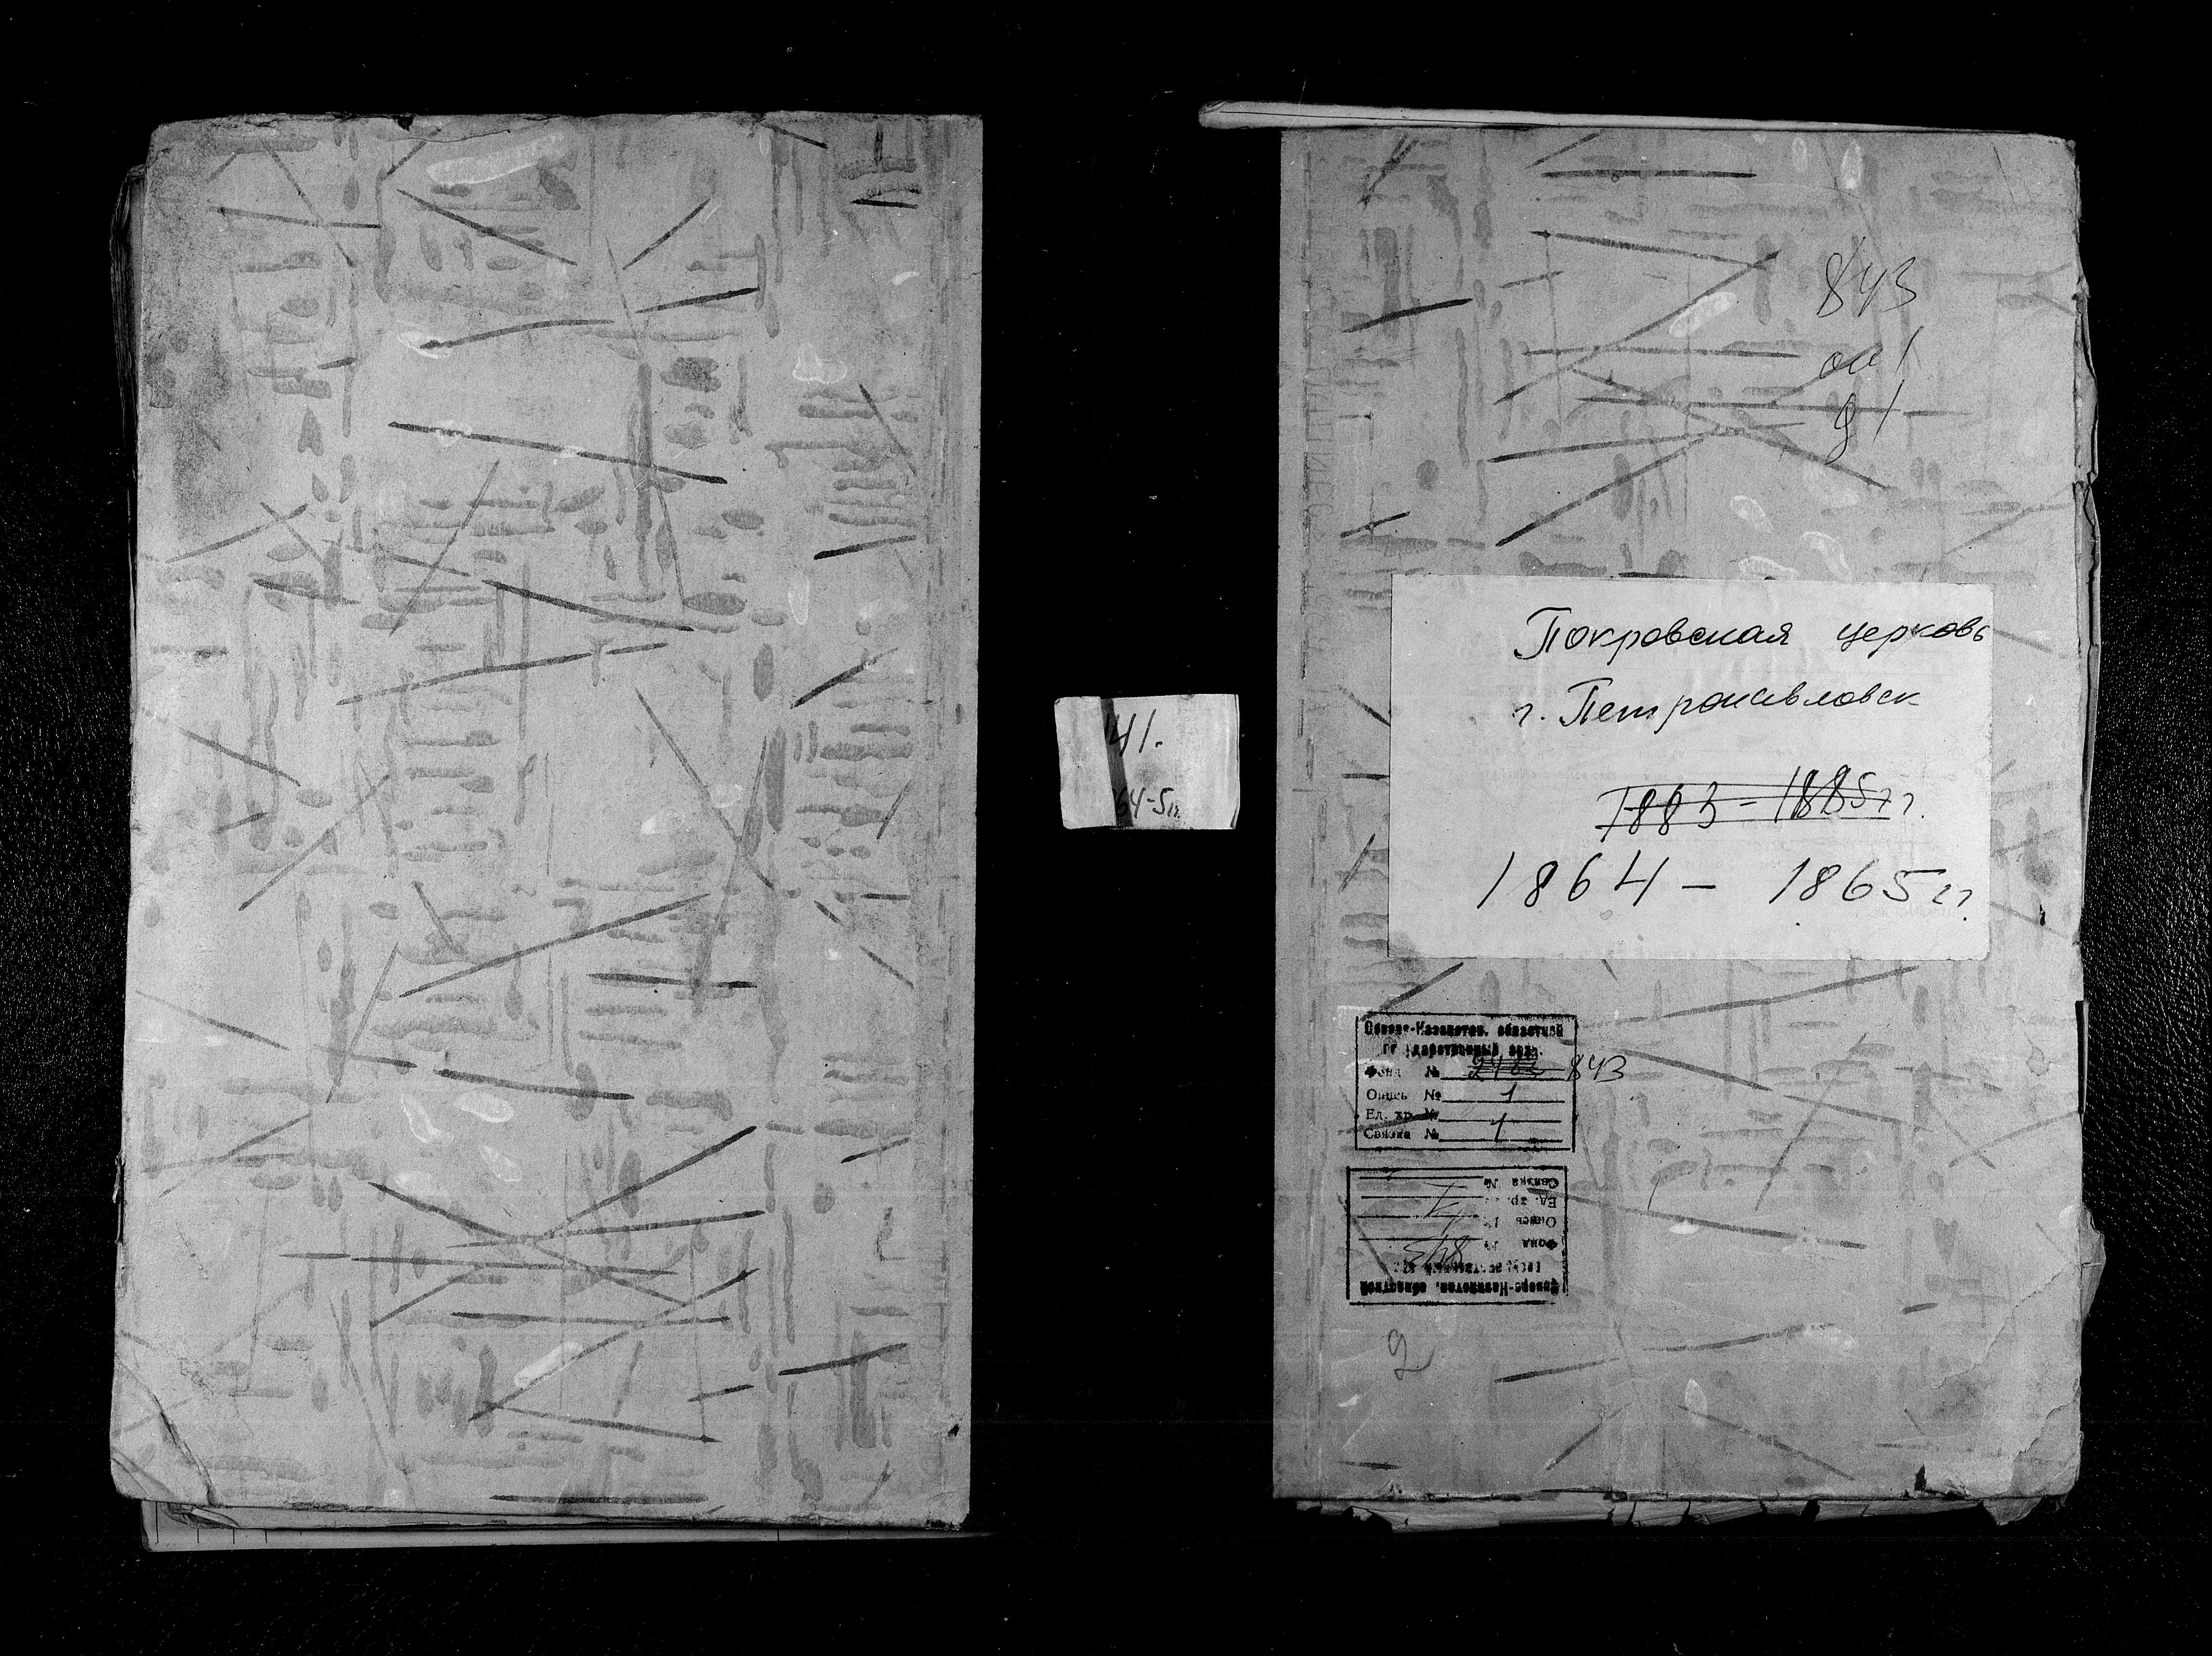 141.
64-5гг.
843
оп 1
д 1
Покровская церковь
г. Петропавловск
1883 - 1885гг.
1864 - 1865гг.
Северо-Казахстан. областной
государственный арх.
Фонд № 843
Опись № 1
Ед. хр. №
Связка № 1
Северо-Казахстан. областной
государственный
Фонд № 843
Опись № 1
Ед. хр. № 1
Связка №
2